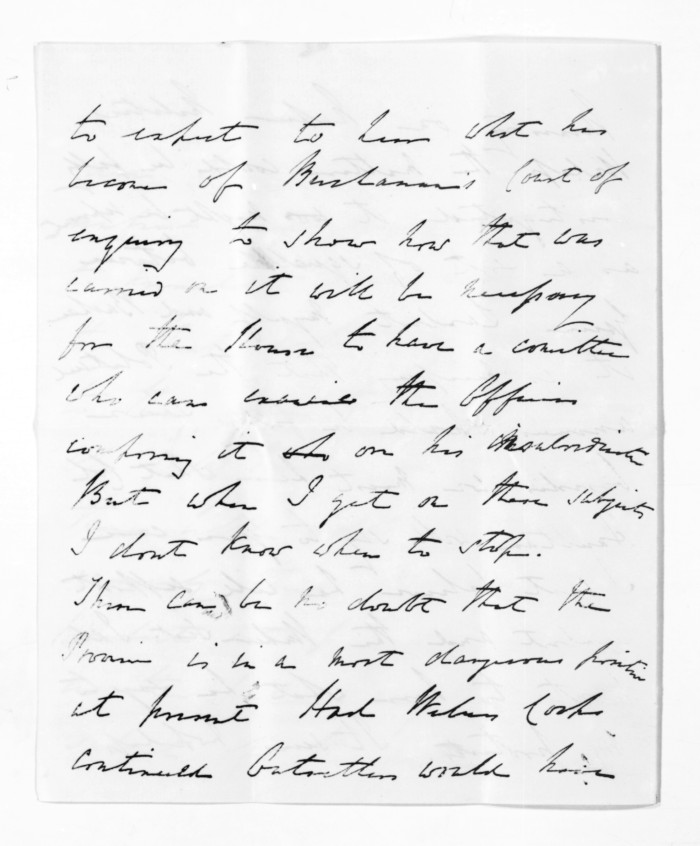 to expect to hear what has
become of Buchanan's Court of
enquiry to show how that was
carried on it will be necessary
for the House to have a comittee
who can examine the Officers
composing it on his
But when I get on these subjects
I dont know when to stop.
There can be no doubt that the
Province is in a most dangerous position
at present Had
continued Outsettlers would have